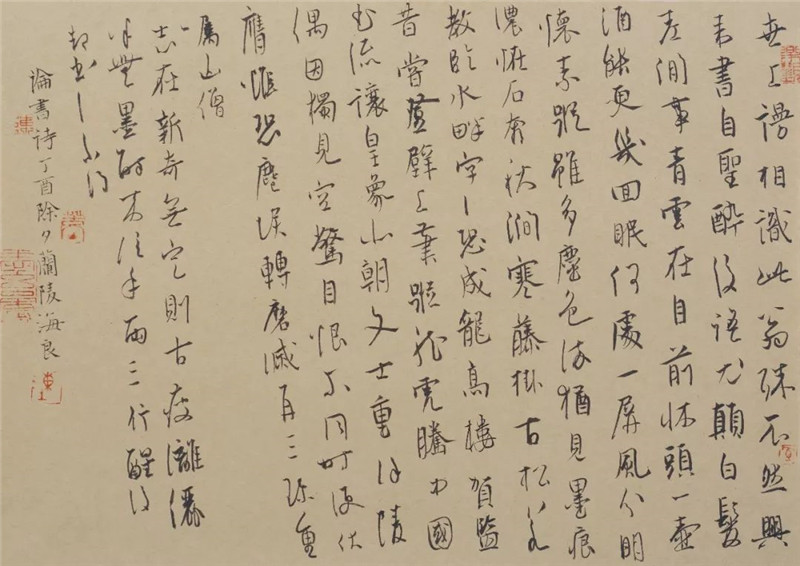 世上謾相識此翁殊不然興
来書自聖醉後語尤顛白髮
老閒事青雲在目前床頭一壺
酒能更幾回眠何處一屏風分明
懷素蹤雖多塵色染猶見墨痕
濃怪石奔秋澗寒藤掛古松若
教臨水畔字字恐成龍高樓賀監
昔曾登壁上筆蹤龍虎騰中國
書流讓皇象北朝文士重徐陵
偶因獨見空驚目恨不同時便伏
膺惟恐塵埃轉磨滅再三珍重
屬山僧
志在新奇無定則古瘦灕儷
半無墨醉来信手兩三行醒後
却書書不得
論書詩丁酉除夕蘭陵海良